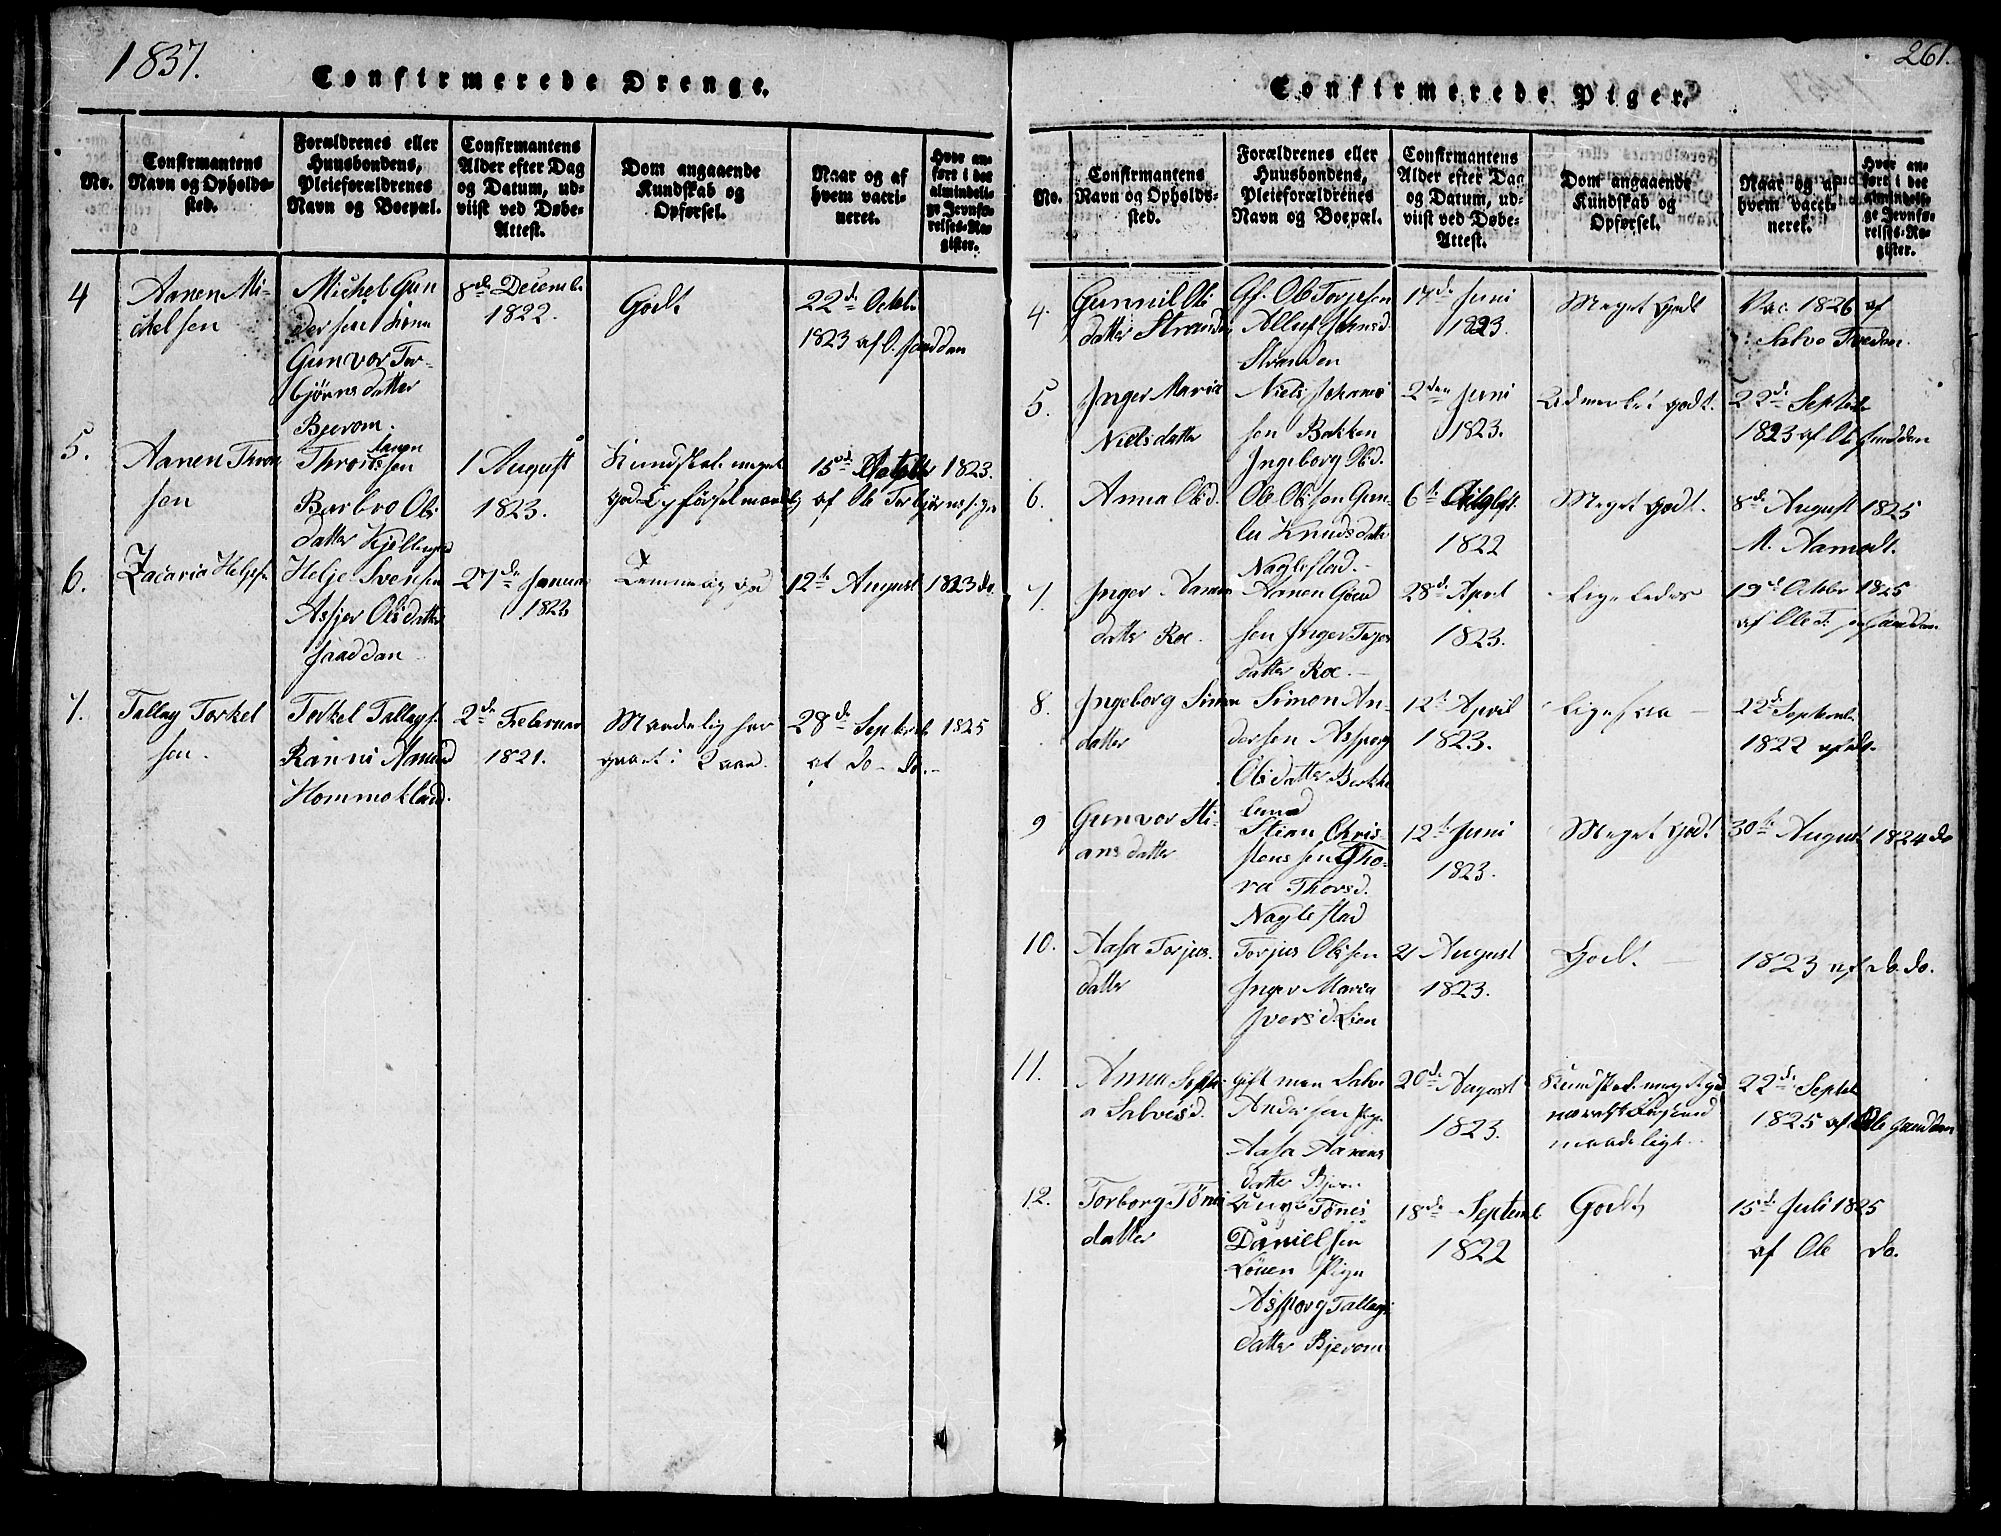 1837.
Confirmerede Drenge.
No.
Confirmantens
Navn og Opholds-
sted.
Forældrenes eller
Huusbondens,
Pleieforældrenes
Navn og Boepæl.
Confirmantens
Alder efter Dag
og Datum, ud-
viist ved Døbe-
Attest.
Dom angaaende
Kundskab og
Opførsel.
Naar og af
hvem vacci-
neret.
Hvor an-
ført i det
almindeli-
ge Jevnfø-
relses-Re-
gister.
4
Aanen Mi-
chelsen
Michel Gun
dersen
Gunvor Tor-
bjørnsdatter
Bjerom.
8de Decemb.
1822.
Godt
22de Octob.
1823 af O.
5.
Aanen Thron
sen
Thron Aanen
sen
Barbro Ols
datter
1 August
1823.
Kundskab meget
god
15de Octob 1823.
af Ole Torbjørns
6.
Zacaria Helje
Helje Svensen
Asbjer Olsdatter
27de Januar
1823
12te August 1823 do.
7.
Tallag Torkel
sen.
Torkel Tallags.
Ranni
Hommekland.
2de Februar
1821.
Maadelig har
gaaet i 2 aar.
28de Septemb 1825
af do - do.-
261.
Confirmerede Piger.
No.
Confirmantens
Navn og Opholds-
sted.
Forældrenes eller
Huusbondens,
Pleieforældrenes
Navn og Boepæl.
Confirmantens
Alder efter Dag
og Datum, ud-
viist ved Døbe-
Attest.
Dom angaaende
Kundskab og
Opførsel.
Naar og af
hvem vacci-
neret.
Hvor an-
ført i det
almindeli-
ge Jevnfø-
relses-Re-
gister.
4.
Gunnil Ols
datter Stranden
Gf. Ole Torjusen
Stranden
17de Juni
1823.
Meget godt
Vac. 1826 af
Salve Tvedan.
5.
Inger Maria
Nielsdatter
Niels Johannes
sen Bakken
Ingeborg Olsd.
2den Juni
1823.
Udmerket godt.
22de Septemb
1823 af Ole
6.
Anna Olsd.
Ole Olsson Gun
Knudsdatter
Naglestad.-
6te
1822
Meget godt.
8de August 1825
M. Aamodt.
7.
Inger Aanen
datter Roe.
Aanen
sen Inger Torjus
datter Roe.-
28de April
1823.
Ligeledes
19de October 1825
af Ole
8.
Ingeborg Simon
datter
Simon An-
dersen Asperg
Olsdatter Birke
lund
12te April
1823.
Ligesaa -
22de Septemb
1822 af do.
9
Gunvor Sti-
ansdatter
Stian Chris-
stenssen Tho-
ra Thorsd.
Naglestad
12te Juni
1823.
Meget godt
30te August 1824 do
10.
Aasa Torjus.
datter
Torjus Olssen
Inger Maria
Iversd. Lien
21 August
1823.
Godt. -
1823 af do. do.
11.
Anna
Salvesd.
gift man Salve
Andersen
Aasa Aanens
datter
20de August
1823.
maadeligt.
22de Septemb
1825 af Ole
12.
Torborg Tønnes
datter
Tønnes
Danielsen
Pige
Asborg Tallags
datter Bjerom
18de Septemb.
1822
Godt
15de Juli 1825
af Ole do.